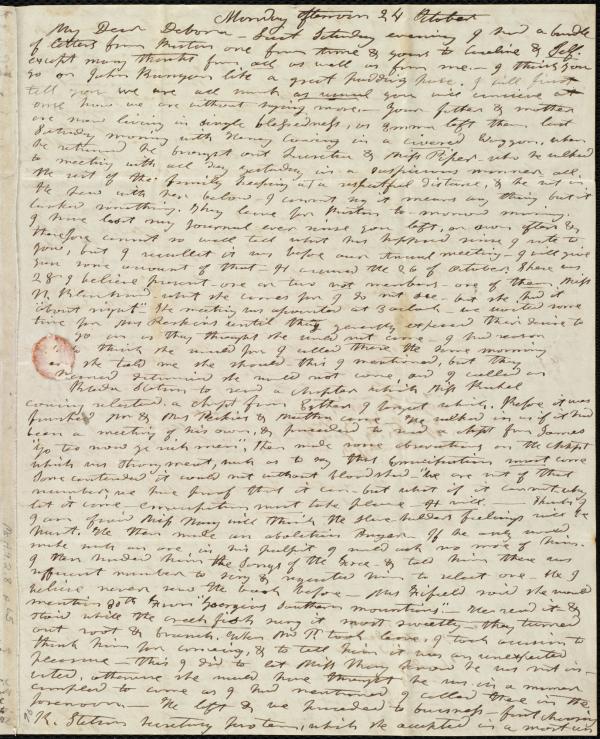 Monday afternoon 24 October
My Dear Debora - Last Saturday evening I had a bundle
of letters from Boston one from time & yours to Caroline & Self
except many thanks for all as well as from me - I think you
go on John Bunyan like a great pudding poke, I will first
tell you we are all much as usual you will conceive at
once how we are without saying more - Your father & mother
are now living in single blessedness, as Emma left them last
Saturday morning with Henry Cowing in a covered Waggon, when
he returned he brought out Lucretia & Miss Piper - who he walked
to meeting with all day yesterday in a suspicious manner all
the rest of the family keeping at a respectful distance, & he sat in
the Pew with her below - I cannot say it means any thing but it
looked something. They leave for Boston to-morrow morning.
I have lost my Journal ever since you left, or soon after &
therefore cannot so well tell what has happened since I wrote to
you, but I recollect it was before our Annual meeting - I will give
you some account of that - It occurred the 26 of October. There was
28 I believe present - one or two not members - one of them Miss
N. - what she comes for I do not see - but she had it
"about right" The meeting was appointed at 3 oclock - we waited some
time for Mrs Perkins until they generally expressed their desire to
go on as they thought she would not come - I had reason
to think she would for I called there the same morning
& she told me she should - this I mentioned, but they
seemed determined she would not come, and I called on
Stetson to read a chapter which Miss
Cowing selected a chapt from Esther I forget which. Before it was
finished Mr & Mrs Perkins & Mother came - He walked in as if it had
been a meeting of his own, & proceeded to read a chapt from James
"Go too now ye rich men", then made some observations on the Chapt
which was strong meat, such as to say that Emancipation must come
Some contended it could not without bloodshed - "We are not of that
number, we have proof that it can - but what if it cannot, why
let it come, emancipation must take place - it will -
I am afraid Miss Mary will think the slave holders feelings will be
hurt. He then made an abolition prayer - If he only would
make such an one in his pulpit I would ask no more of him.
I then handed him the Songs of the Free - & told him there was
sufficient number to sing & requested him to select one. He I
believe never saw the book before - Mrs Fifield said she would
mention 30th Hymn "Gorgeous Southern mountains" - He read it &
staid while the sang it most sweetly - they turned
out root & branch. When Mr P took leave, I took occasion to
thank him for coming, & to tell him it was an unexpected
pleasure - this I did to let Miss Mary know he was not in-
vited, otherwise she would have thought he was in a manner
compelled to come as I had mentioned I called there in the
forenoon - He left & we proceeded to business - first choosing
R. Stetson secretary protem, which she accepted in a most